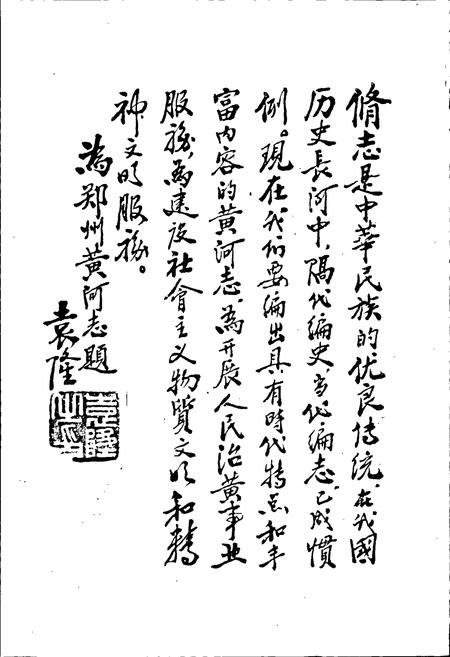 脩志是中華民族的优良傳統，在我國
历史長河中，隔代编史，当代编志，已成慣
例。現在我们要编出具有時代特点和丰
富内容的黄河志，為开展人民治黄事业
服務，為建设社會主义物質文明和精
神文明服務。
為郑州黄河志題
袁隆
袁隆之印